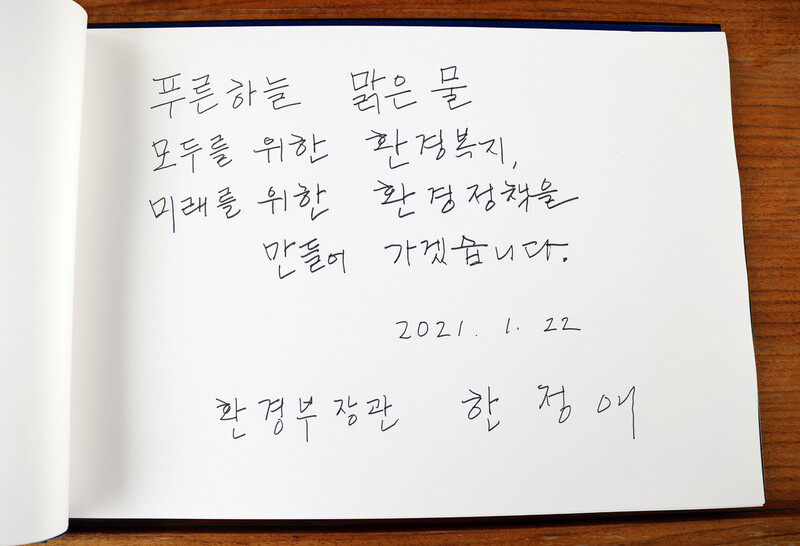 푸른하늘 맑은 물
모두를 위한 환경복지,
미래를 위한 환경정책을
만들어 가겠습니다.
2021. 1. 22
환경부장관 한정애